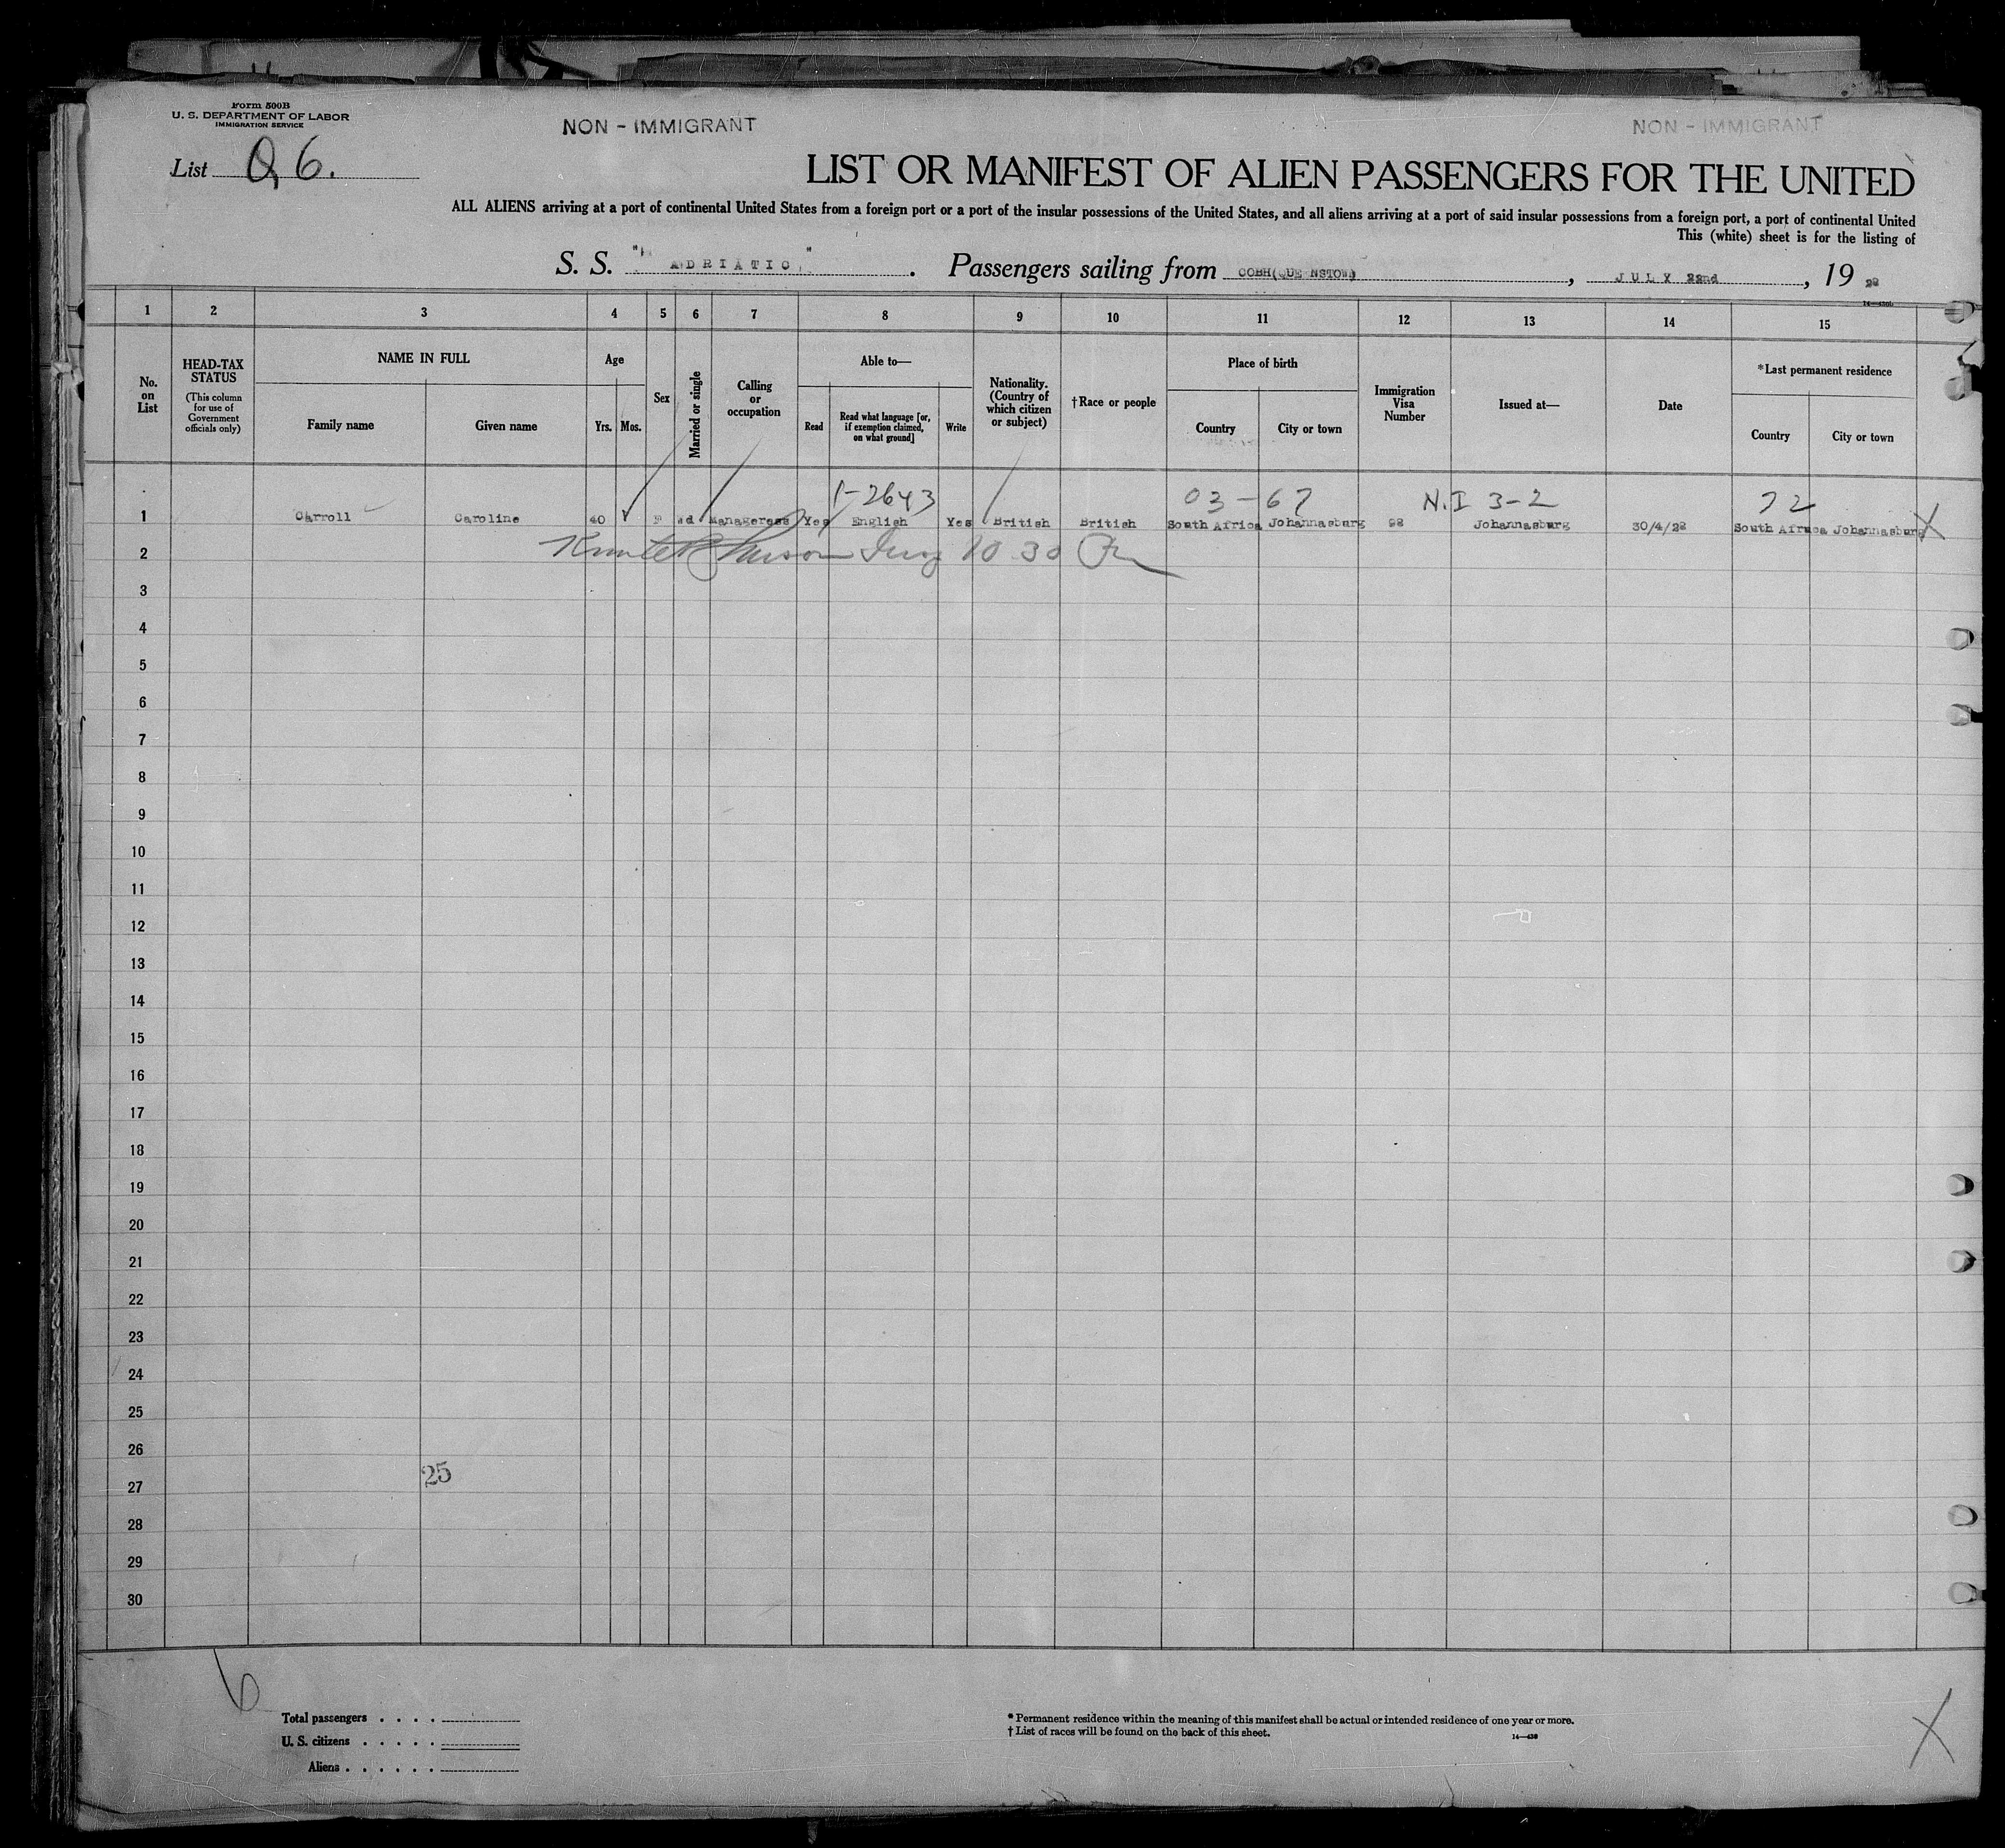 Form 500B
U. S. DEPARTMENT OF LABOR
IMMIGRATION SERVICE
NON - IMMIGRANT
NON - IMMIGRANT
List Q 6.
LIST OR MANIFEST OF ALIEN PASSENGERS FOR THE UNITED
ALL ALIENS arriving at a port of continental United States from a foreign port or a port of the insular possessions of the United States, and all aliens arriving at a port of said insular possessions from a foreign port, a port of continental United
This (white) sheet is for the listing of
S. S. " ADRIATIC, " . Passengers sailing from COBH(QUE NSTOWN) , JULY 22nd , 19 28
14—430b
1 2 3 4 5 6 7 8 9 10 11 12 13 14 15
No. on List
HEAD-TAX STATUS
(This column for use of Government officials only)
NAME IN FULL
Family name
Given name
Age
Yrs. Mos.
Sex
Married or single
Calling or occupation
Able to—
Read
Read what language [or, if exemption claimed, on what ground]
Write
Nationality. (Country of which citizen or subject)
†Race or people
Place of birth
Country
City or town
Immigration Visa Number
Issued at—
Date
*Last permanent residence
Country
City or town
1-2643 03-67 N.I 3-2 72
1 Carroll Caroline 40 F wd Manageress Yes English Yes British British South Africa Johannasburg 98 Johannasburg 30/4/28 South Africa Johannasburg X
2 10 30
3
4
5
6
7
8
9
10
11
12
13
14
15
16
17
18
19
20
21
22
23
24
25
26
25
27
28
29
30
6
Total passengers . . . .
U. S. citizens . . . . .
Aliens . . . . . .
* Permanent residence within the meaning of this manifest shall be actual or intended residence of one year or more.
† List of races will be found on the back of this sheet.
14—430
X